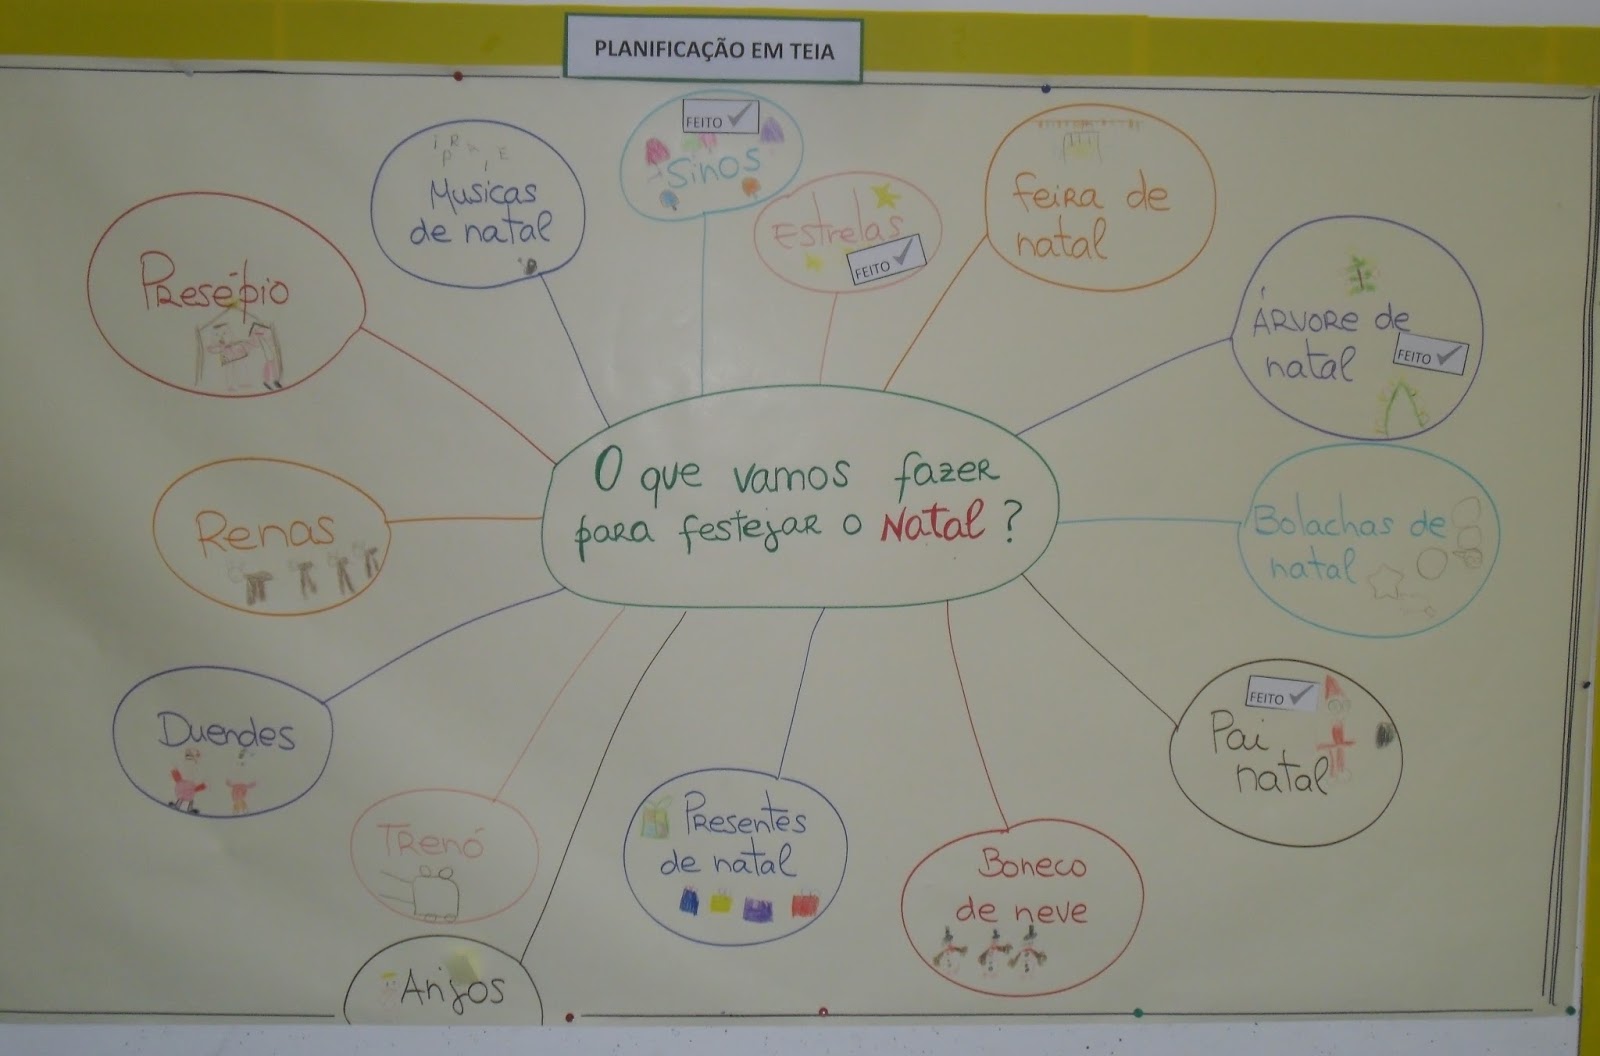 PLANIFICAÇÃO EM TEIA
O que vamos fazer
para festejar o Natal?
Presépio
Musicas
de natal
FEITO
Sinos
Estrelas
FEITO
Feira de
natal
Árvore de
natal
FEITO
Bolachas de
natal
FEITO
Pai
natal
Boneco
de neve
Presentes
de natal
Anjos
Trenó
Duendes
Renas